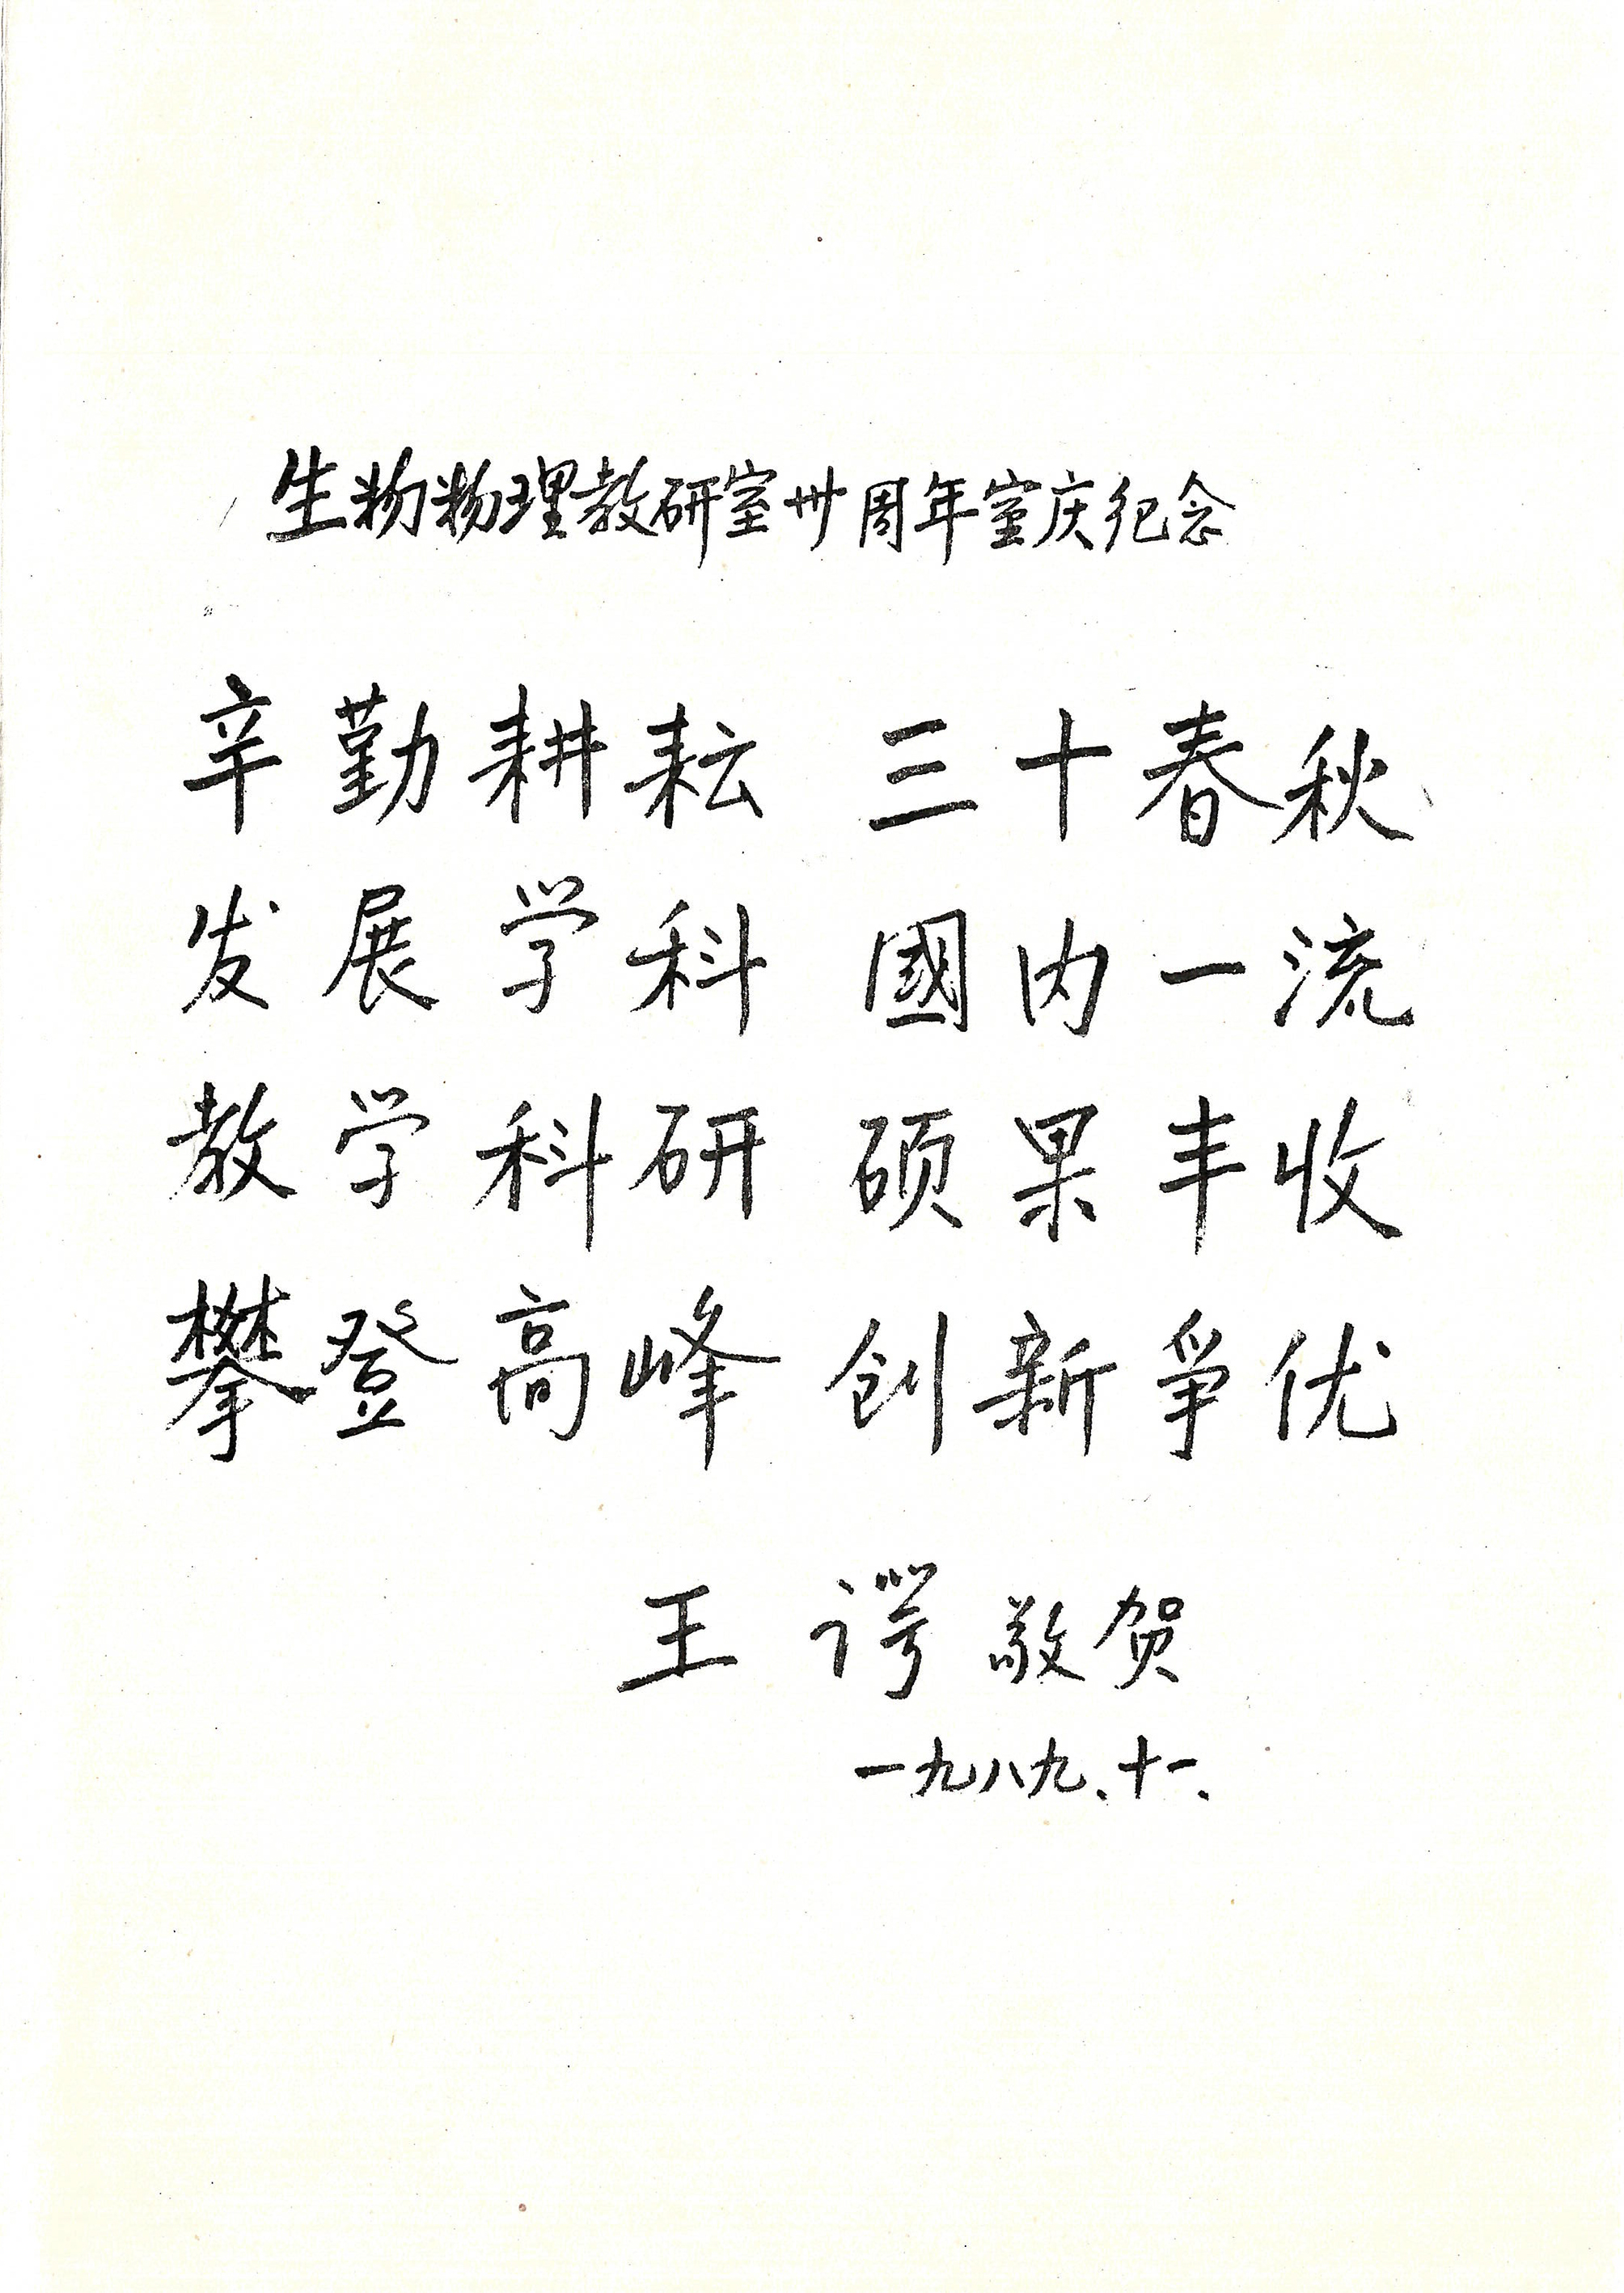 生物物理教研室卅周年室庆纪念
辛勤耕耘 三十春秋
发展学科 國内一流
教学科研 硕果丰收
攀登高峰 创新爭优
王谔敬贺
一九八九、十一、